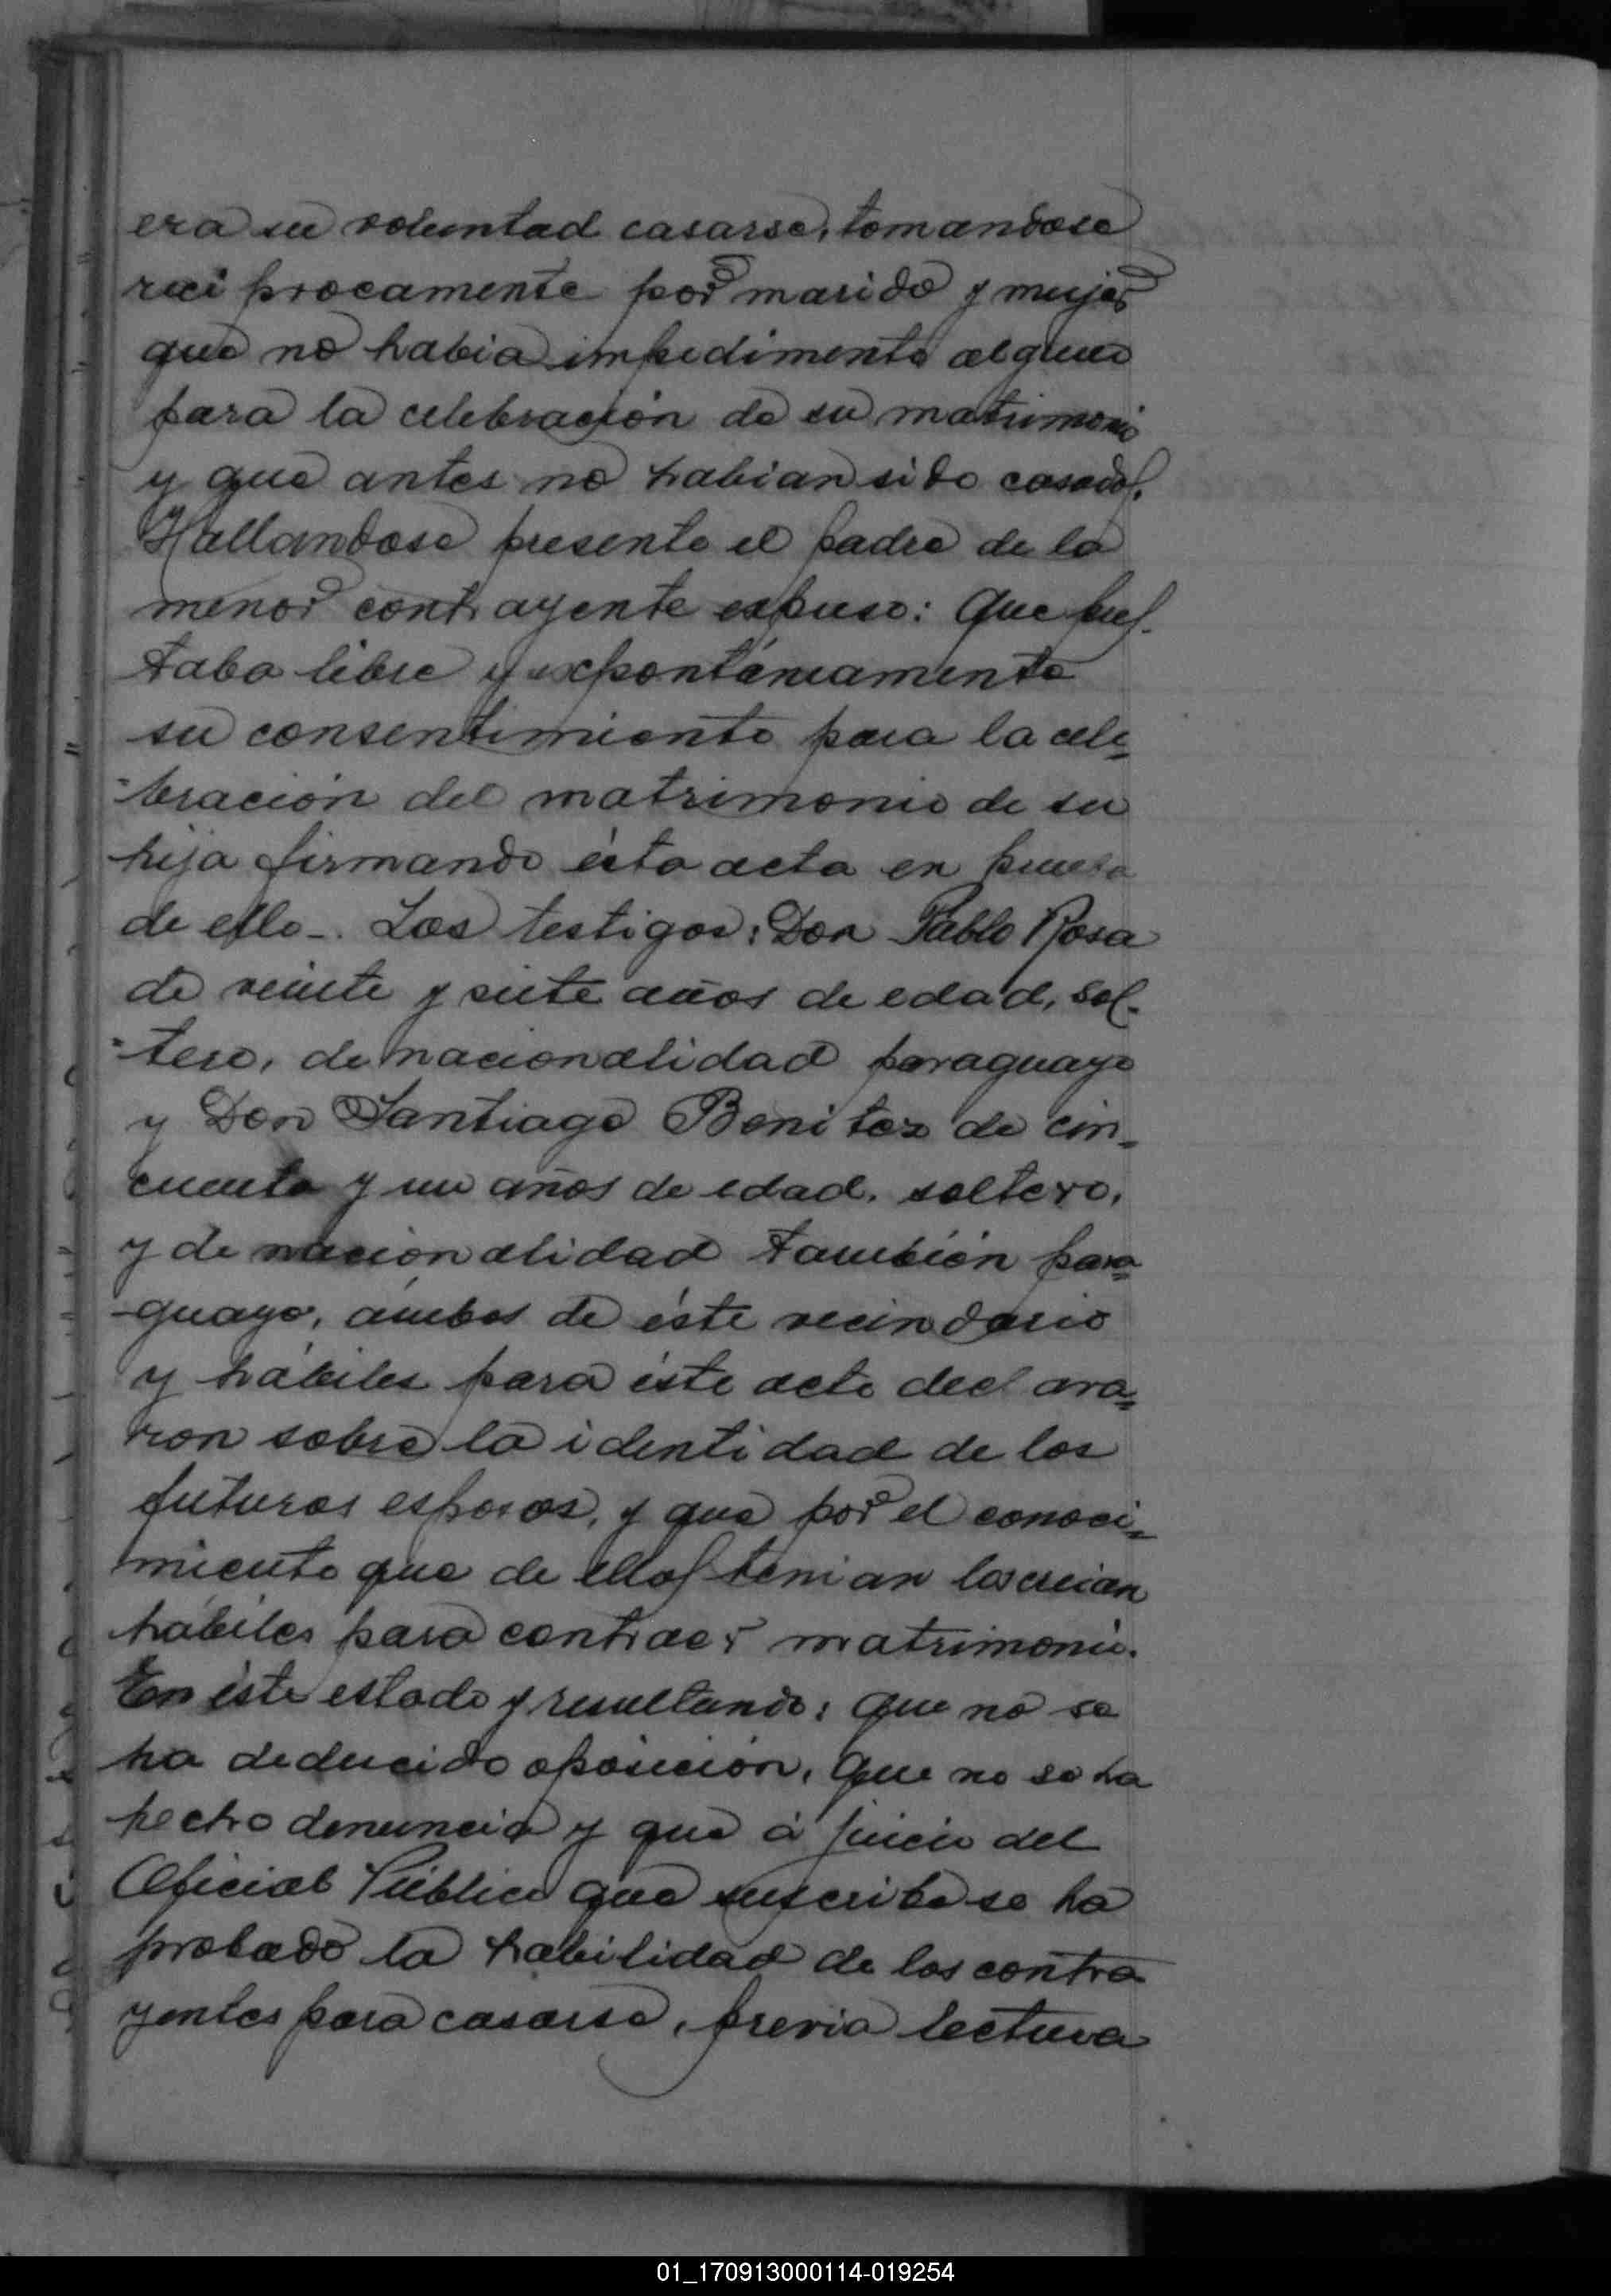 era su voluntad casarse, tomandose
reciprocamente por marido y mujer
que no habia impedimento alguno
para la celebración de su matrimonio
y que antes no habian sido casados.
Hallandose presente el padre de la
menor contrayente expuso: Que pres-
taba libre y expontáneamente
su consentimiento para la cele=
=bración del matrimonio de su
hija firmando ésta acta en prueba
de ello-. Los testigos: Don Pablo Rosa
de veinte y siete años de edad, sol-
=tero, de nacionalidad paraguayo
y Don Santiago Benitez de cin=
cuenta y un años de edad, soltero,
y de nacionalidad también para=
-guayo, ámbos de éste vecindario
y hábiles para éste acto declara=
ron sobre la identidad de los
futuros esposos, y que por el conoci=
miento que de ellos tenian los creian
hábiles para contraer matrimonio.
En éste estado y resultando: que no se
ha deducido oposición, que no se ha
hecho denuncia y que á juicio del
Oficial Público que suscribe se ha
probado la habilidad de los contra
yentes para casarse, previa lectura
01_170913000114-019254